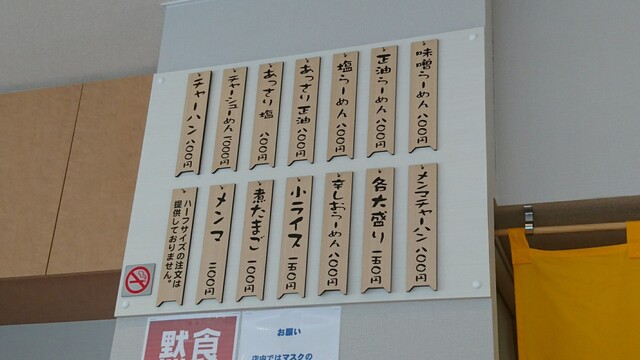 味噌らーめん 八〇〇円
正油らーめん 八〇〇円
塩らーめん 八〇〇円
あっさり正油 八〇〇円
あっさり塩 八〇〇円
チャーシューめん 1000円
チャーハン 八〇〇円
メンマチャーハン 八〇〇円
各大盛り 一五〇円
辛しおらーめん 八〇〇円
小ライス 一五〇円
煮たまご 一〇〇円
メンマ 二〇〇円
ハーフサイズの注文は
提供しておりません。
黙食
お願い
店内ではマスクの